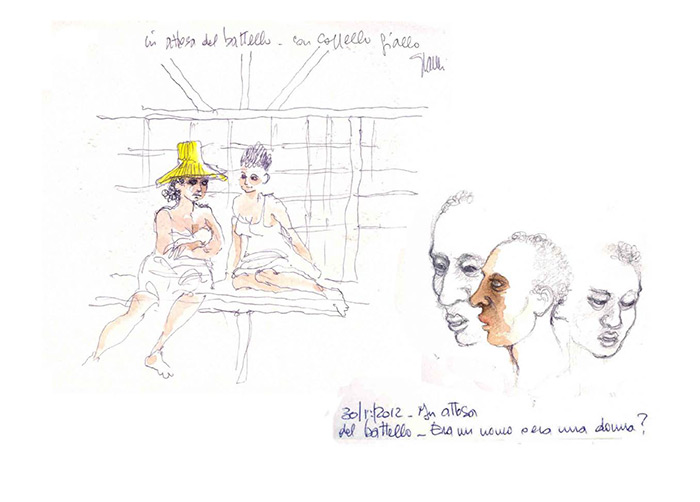 in attesa del battello - con cappello giallo
30/1/2012 - In attesa
del battello - Era un uomo o era una donna?